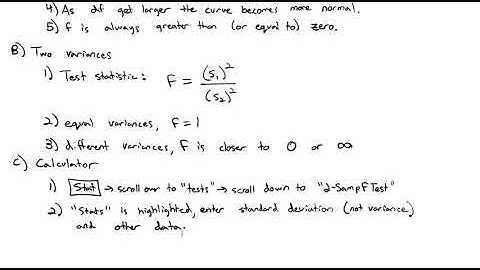 4) As df get larger the curve becomes more normal.
5) F is always greater than (or equal to) zero.
B) Two variances
1) Test statistic: F = (s₁)² / (s₂)²
2) equal variances, F = 1
3) different variances, F is closer to 0 or ∞
C) Calculator
1) Stat → scroll over to "tests" → scroll down to "2-SampFTest"
2) "Stats" is highlighted, enter standard deviation (not variance)
and other data.